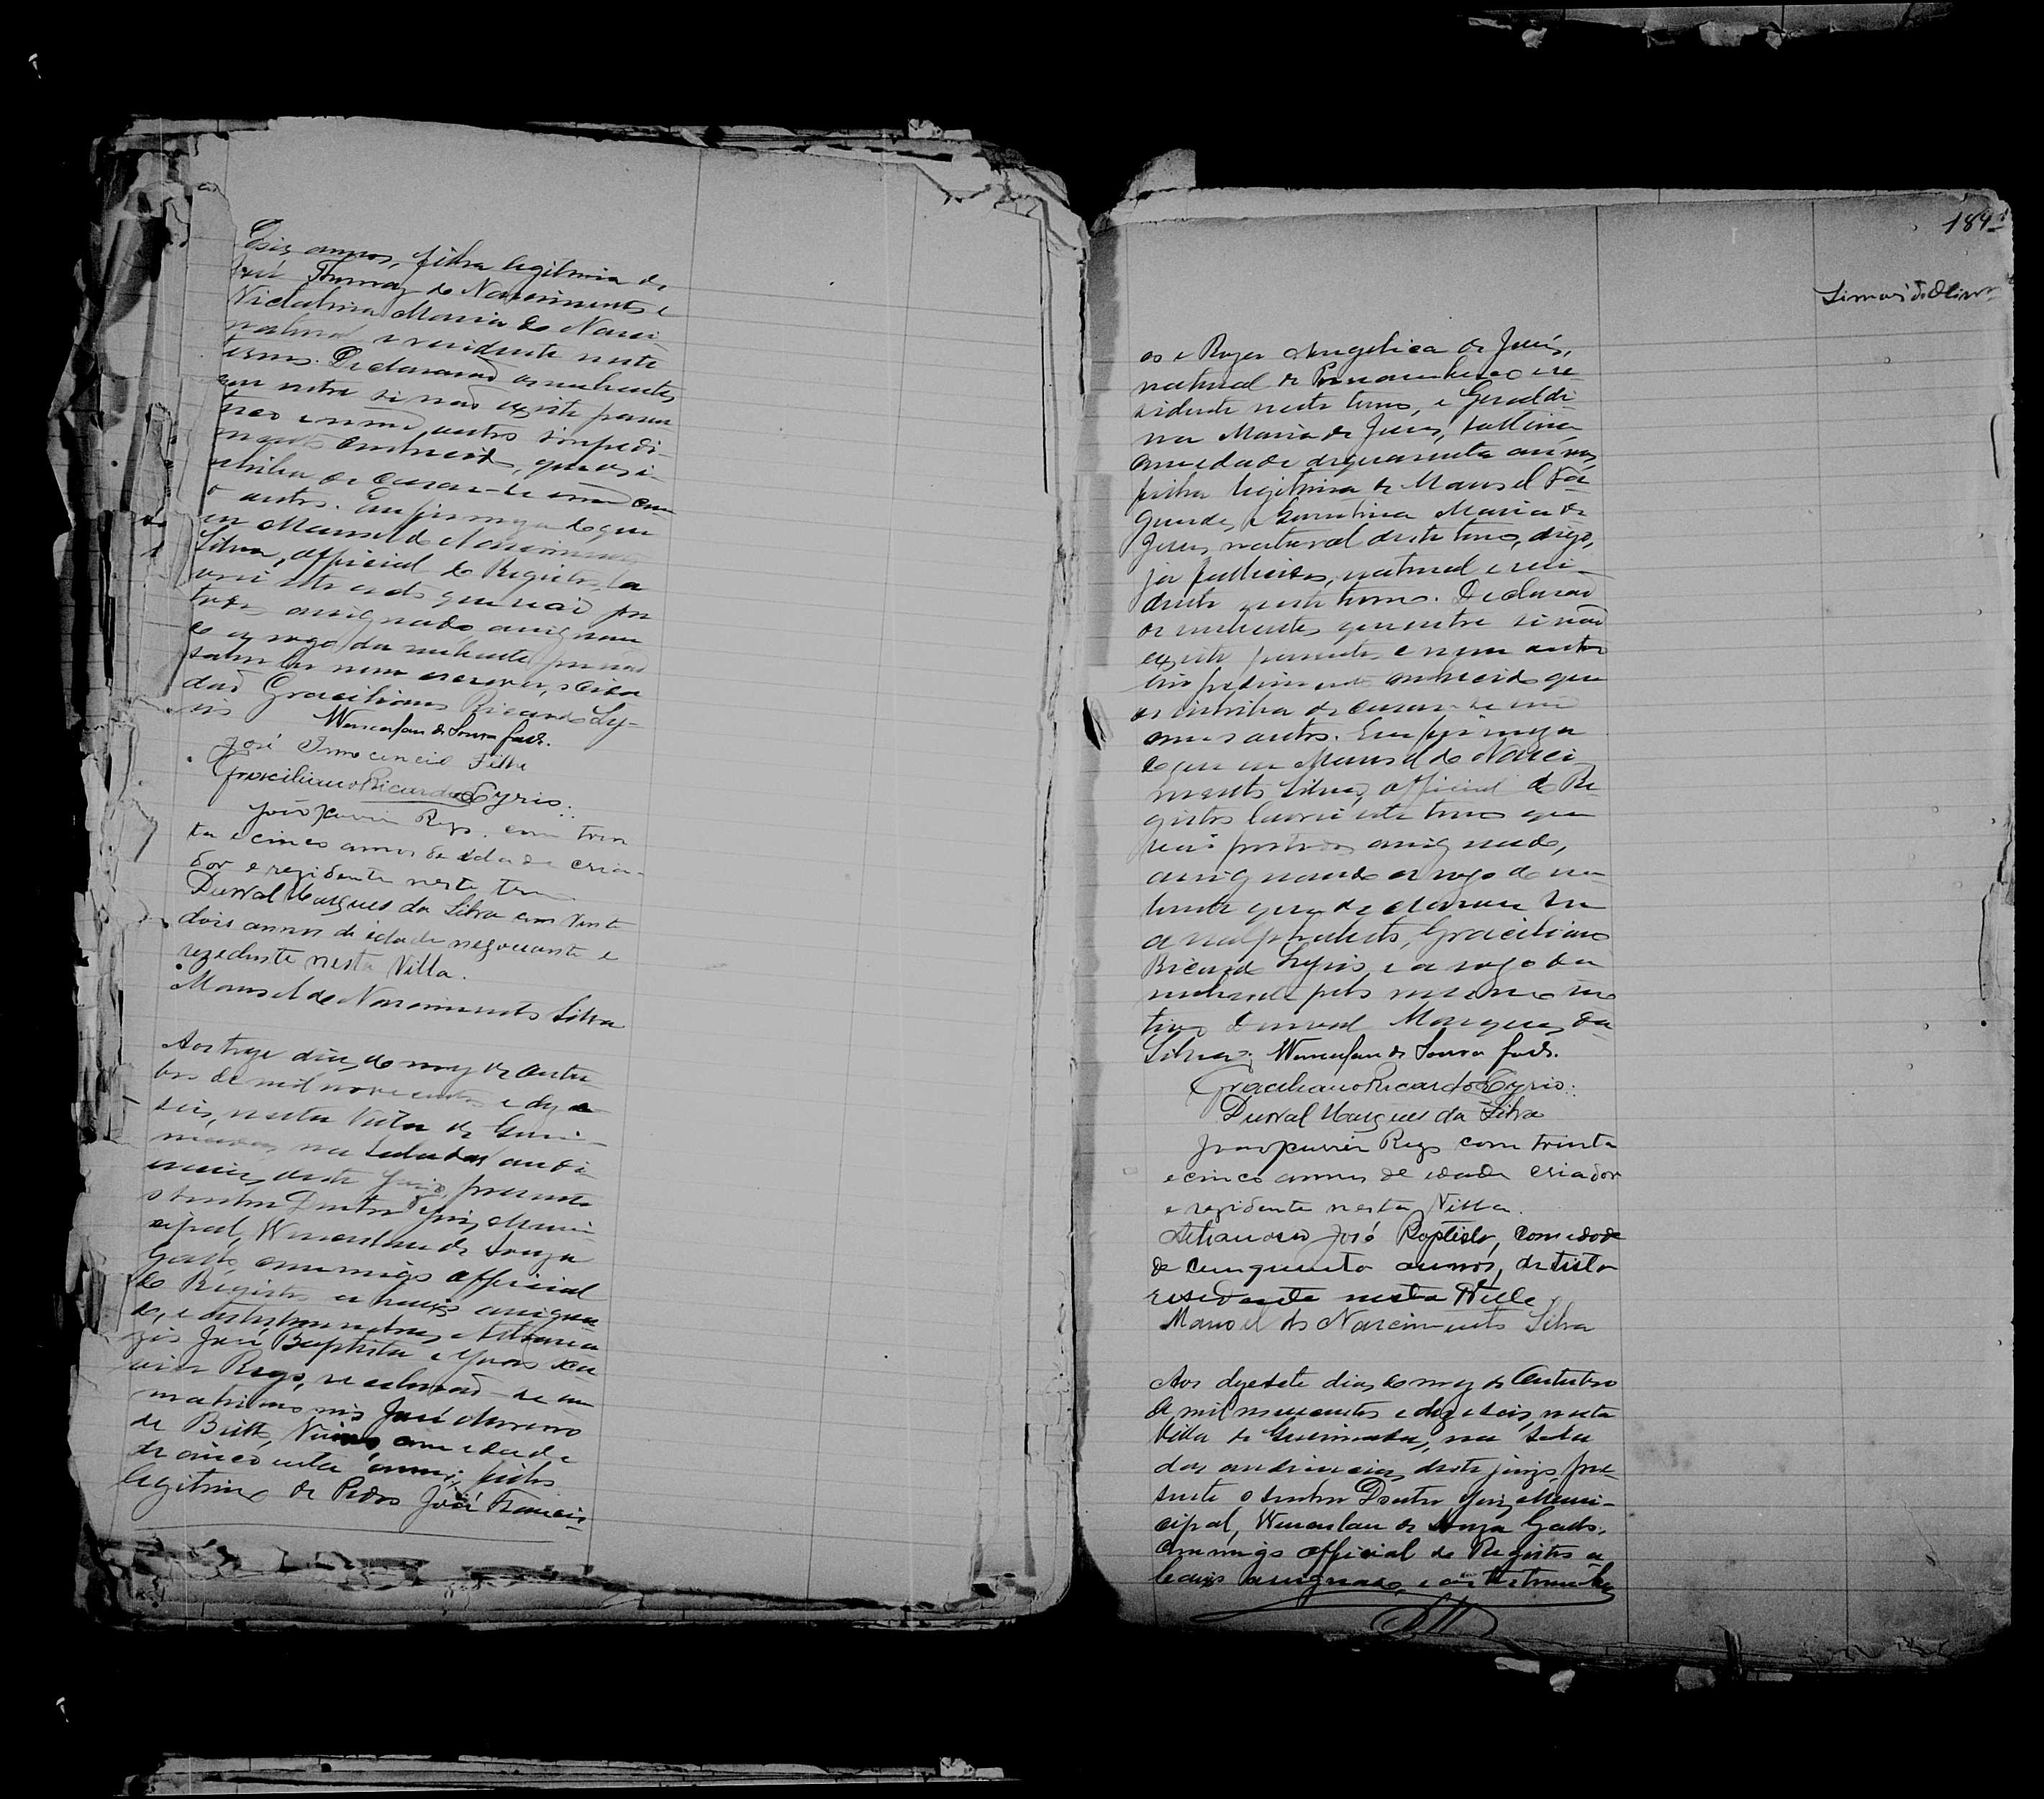 annos, filha legitima de
José Thomaz do Nascimento e
Victalina Maria do Nasci-
natural e residente neste
termo. Declararam os nubentes
que entre si não existe paren
tesco e nem outro impedi-
mento conhecido, que os i-
nhiba de casar-se um com
o outro. Em firmeza do que
eu Manoel do Nascimento
Silva, official do Registro, la
vrei este acto que vai por
todos assignado assignan
do a rogo da nubente por não
saber ler nem escrever, o cida
dão Graciliano Ricardo Ly-
rio Wenceslau de Souza
José Innocencio Filho
Graciliano Ricardo Lyrio.
João Xavier Rego. com trin
ta e cinco annos de idade cria-
dor e rezidente neste
Durval Marques da Silva com vinte
dois annos de idade negociante e
rezedente nesta Villa.
Manoel do Nascimento Silva
Aos treze dias do mez de Outu
bro de mil novecentos e deze
seis, nesta Villa de Quei-
madas, na sala das audi-
encias deste Juizo, presente
o senhor Doutor Juiz Muni
cipal, Wenceslau de Souza
commigo official
do Registro abaixo assigna
do, e as testemunhas Athana
zio José Baptista e João Xa
vier Rego, receberam-se em
matrimonio José
de Britto, Viuvo, com edade
de cincoenta annos, filho
legitimo de Pedro José Francis-
184
Simão de Oliveira
co e Roza Angelica de Jesus,
natural de Pernambuco e re-
sidente neste termo, e Geraldi-
na Maria de Jesus, solteira,
com edade de quarenta annos,
filha legitima de Manoel Fa-
gundes e Maria de
Jesus, natural deste termo, digo,
ja fallecidos, natural e resi-
dente neste termo. Declaram
os nubentes que entre si não
existe parente e nem outro
impedimento conhecido que
os inhiba de casar-se um
com o outro. Em firmeza
do que eu Manoel do Nasci
mento Silva, official do Re-
gistro lavrei este termo que
vai por todos assignado,
assignando a rogo do nu-
bente que declarou ser
analphabeto, Graciliano
Ricardo Lyrio, e a rogo da
nubente pelo mesmo mo
tivo Durval Marques da
Silva. Wenceslau de Souza
Graciliano Ricardo Lyrio.
Durval Marques da Silva
João Xavier Rego com trinta
e cinco annos de idade criador
e rezidente nesta Villa.
Athanazio José Baptista, com edade
de cinquenta annos,
residente nesta Villa
Manoel do Nascimento Silva
Aos dezesete dias do mez de Outubro
de mil novecentos e dezeseis, nesta
Villa de Queimadas, na sala
das audiencias deste juizo, pre-
sente o senhor Doutor Juiz Muni-
cipal, Wenceslau de Souza
commigo official do Registro a
baixo assignado, e as testemunhas